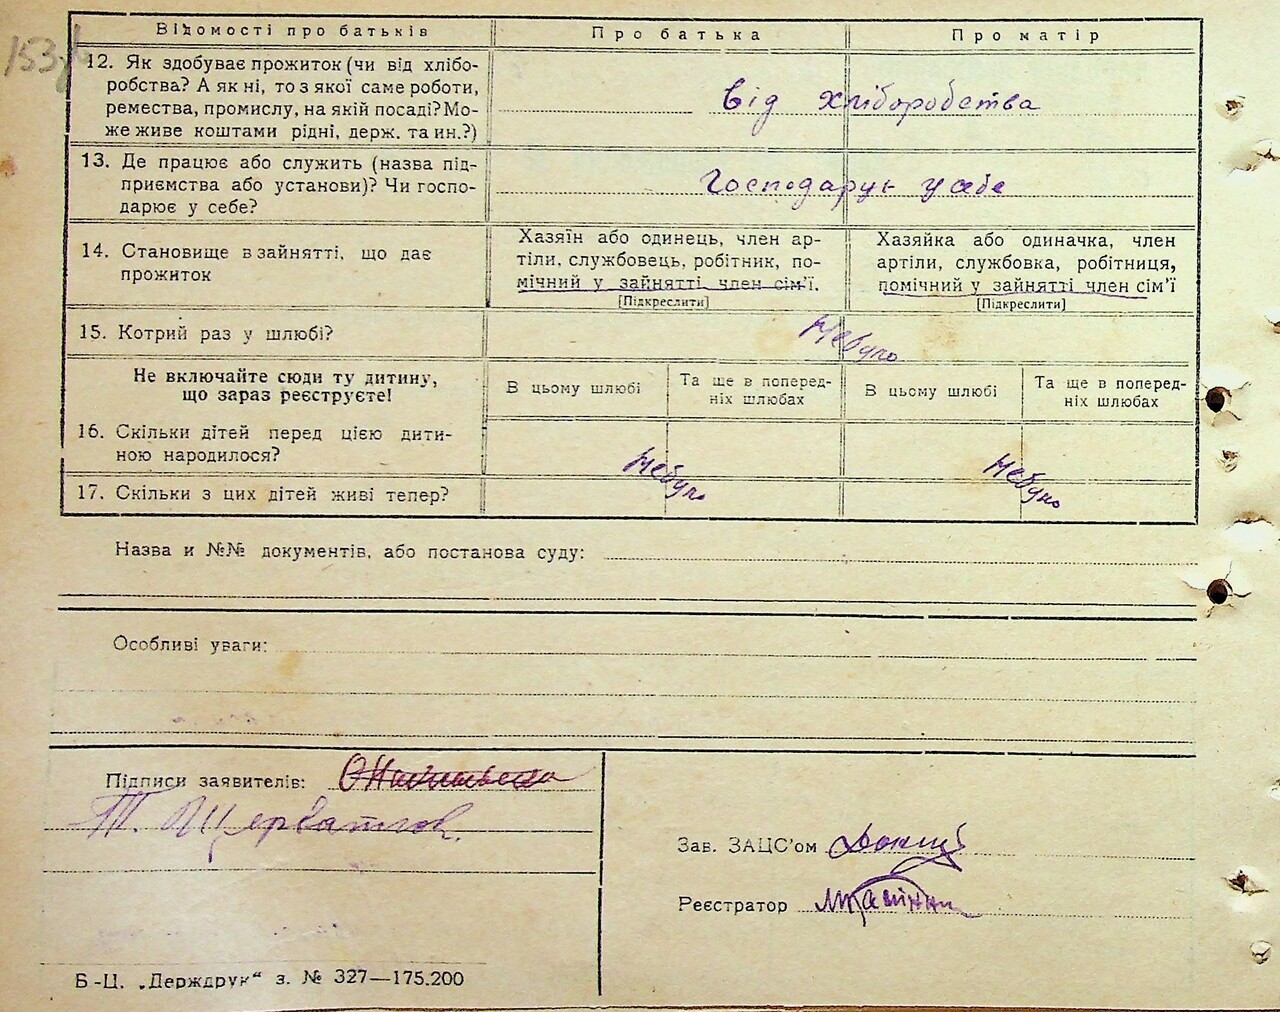 153
Відомості про батьків
Про батька
Про матір
12. Як здобуває прожиток (чи від хлібо-
робства? А як ні, то з якої саме роботи,
ремества, промислу, на якій посаді? Мо-
же живе коштами рідні, держ. та ин.?)
Від хліборобства
13. Де працює або служить (назва під-
приємства або установи)? Чи госпо-
дарює у себе?
Господарує у себе
14. Становище в зайнятті, що дає
прожиток
Хазяїн або одинець, член ар-
тіли, службовець, робітник, по-
мічний у зайнятті член сім'ї.
[Підкреслити]
Хазяйка або одиначка, член
артіли, службовка, робітниця,
помічний у зайнятті член сім'ї
[Підкреслити]
15. Котрий раз у шлюбі?
Небуло
Не включайте сюди ту дитину,
що зараз реєструєте!
В цьому шлюбі
Та ще в поперед-
ніх шлюбах
В цьому шлюбі
Та ще в поперед-
ніх шлюбах
16. Скільки дітей перед цією дити-
ною народилося?
Небуло
Небуло
17. Скільки з цих дітей живі тепер?
Назва и №№ документів, або постанова суду:
Особливі уваги:
Підписи заявителів:
Зав. ЗАЦС'ом
Реєстратор
Б-Ц. „Держдрук“ з. № 327—175.200